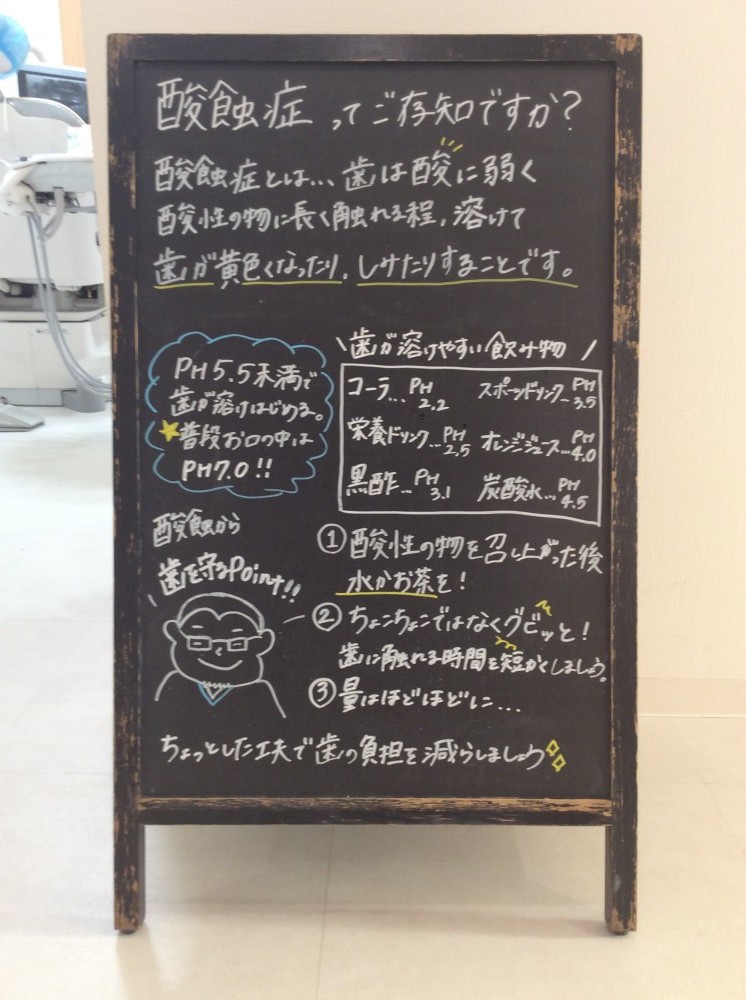 酸蝕症 ってご存知ですか?
酸蝕症とは... 歯は酸に弱く
酸性の物に長く触れる程、溶けて
歯が黄色くなったり、しみたりすることです。
PH5.5未満で
歯が溶けはじめる。
★普段お口の中は
PH7.0!!
\歯が溶けやすい飲み物/
コーラ... PH2.2 スポーツドリンク... PH3.5
栄養ドリンク... PH2.5 オレンジジュース... PH4.0
黒酢... PH3.1 炭酸水... PH4.5
酸蝕から
歯を守るPoint!!
①酸性の物を召し上がった後
水かお茶を!
②ちょこちょこではなくグビッと!
歯に触れる時間を短かくしましょう。
③量はほどほどに...
ちょっとした工夫で歯の負担を減らしましょう